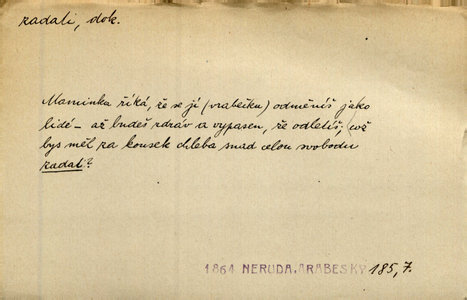 zadati, dok.
Maminka říká, že se jí (vrabečku) odměníš jako
lidé – až budeš zdráv a vypasen, že odletíš; což
bys měl za kousek chleba snad celou svobodu
zadat?
1864 NERUDA, ARABESKY 185, 7.